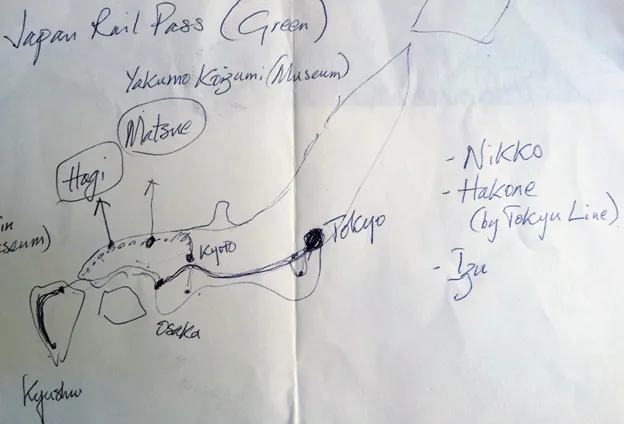 Japan Rail Pass (Green)
Yakumo Koizumi (Museum)
Matsue
Hagi
- Nikko
- Hakone
(by Tokyu Line)
- Izu
Tokyo
Kyoto
Osaka
Kyushu